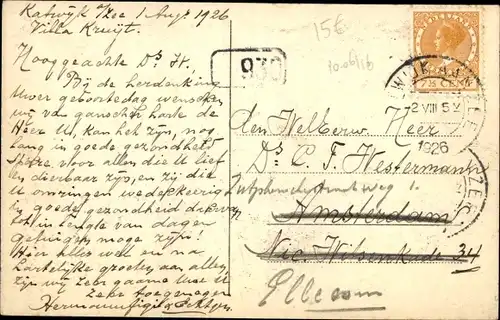 Katwijk a/Zee 1 Aug. 1926
Villa Kruijt.
Hooggeachte Ds. W.
Bij de herdenking
Uwer geboortedag wenschen
wij van ganscher harte de
Heer U, kan het zijn, nog
lang in goede gezondheid
spare voor allen die U lief
en dierbaar zijn, en zij die
U omringen wederkeerig
in goede gezondheid
tot in lengte van dagen
getuigen moge zijn!
Hier alles wel en na
hartelijke groeten aan allen,
zijn wij zeer gaarne met U
zeer toegenegen
15€
930
NEDERLAND
7½ CENT
2 VIII 5 V
1926
den Weleerw. Heer
Ds. C. F. Westermann
weg 1.
Amsterdam
Nic. Witsenkade 34
Ellecom